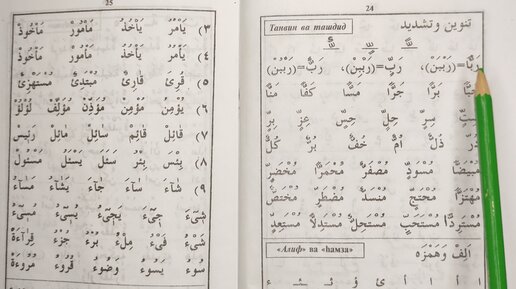 24
Танвин ва ташдид
تنوين وتشديد
رَبًّا=(رَبْبَنْ)، رَبٍّ=(رَبْبِنْ)، رَبٌّ=(رَبْبُنْ)
بَرًّا جَرًّا مَسًّا كَفًّا مَنًّا
سِرٍّ حِلٍّ حِسٍّ عِزٍّ بِرٍّ
دُرٌّ ذُلٌّ أُمٌّ خُفٌّ بُرٌّ كُلٌّ
مُبْيَضًّا مُسْوَدٍّ مُصْفَرٌّ مُحْمَرًّا مُخْضَرٍّ
مُهْتَزًّا مُحْتَجٍّ مُنْسَدٌّ مُضْطَرٍّ مُخْتَصٌّ
مُسْتَرِدًّا مُسْتَحَبٍّ مُسْتَحِلٌّ مُسْتَدِلًّا مُسْتَعِدٍّ
«Алиф» ва «ҳамза»
اَلِفْ وَهَمْزَه
25
٣) يَأْمُرُ يَأْخُذُ مَأْمُورٌ مَأْخُوذٌ
٤) يَأْمُرُ يَأْخُذُ مَأْمُورٌ مَأْخُوذٌ
٥) قُرِئَ قَارِئٌ مُبْتَدِئٌ مُسْتَهْزِئٌ
٦) يُؤْمِنُ مُؤْمِنٌ مُؤَذِّنٌ مُؤَلِّفٌ لُؤْلُؤٌ
٧) قَائِلٌ قَائِمٌ سَائِلٌ مَائِلٌ رَئِيسٌ
٨) بِئْسَ بِئْرٌ سَئَلَ يَسْئَلُ مَسْئُولٌ
٩) شَاءَ سَاءَ جَاءَ يَشَاءُ مَسَاءً
شَيْءٌ جِيءَ يَجِيءُ يُسِيءُ مُسِيءٌ
شَيْءٌ فَيْءٌ مِلْءٌ بُرْءٌ جُزْءٌ قِرَاءَةٌ
سُوءٌ يَسُوءُ وُضُوءٌ قُرُوءٌ مُرُوءَةٌ